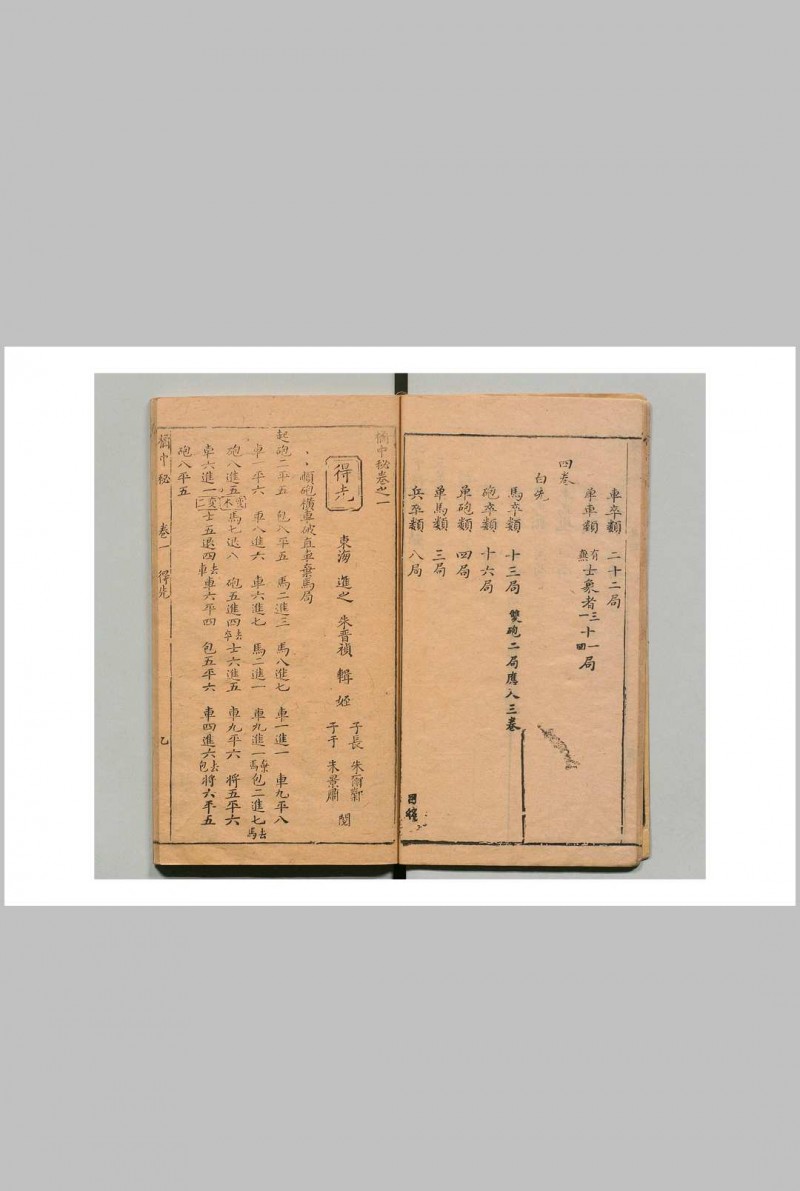 車卒類 二十二局
單車類 有無士象者三十一局 一四
四卷
白先
馬卒類 十三局 雙砲二局應入三卷
砲卒類 十六局
單砲類 四局
單馬類 三局
兵卒類 八局
目
橘中秘卷之一
得先
東海 進之 朱晋禎 輯
子長 朱爾鄴
于于 朱景蕭 閱
順砲橫車破直車棄馬局
起砲二平五 包八平五 馬二進三 馬八進七 車一進一 車九平八
車一平六 車八進六 車六進七 馬二進一 車九進一棄馬 包二進七去馬
砲八進五 馬七退八 砲五進四去卒 士六進五 車九平六 將五平六
車六進一 士五退四去車 車六平四 包五平六 車四進六去包 將六平五
砲八平五
橘中秘 卷一 得先 乙